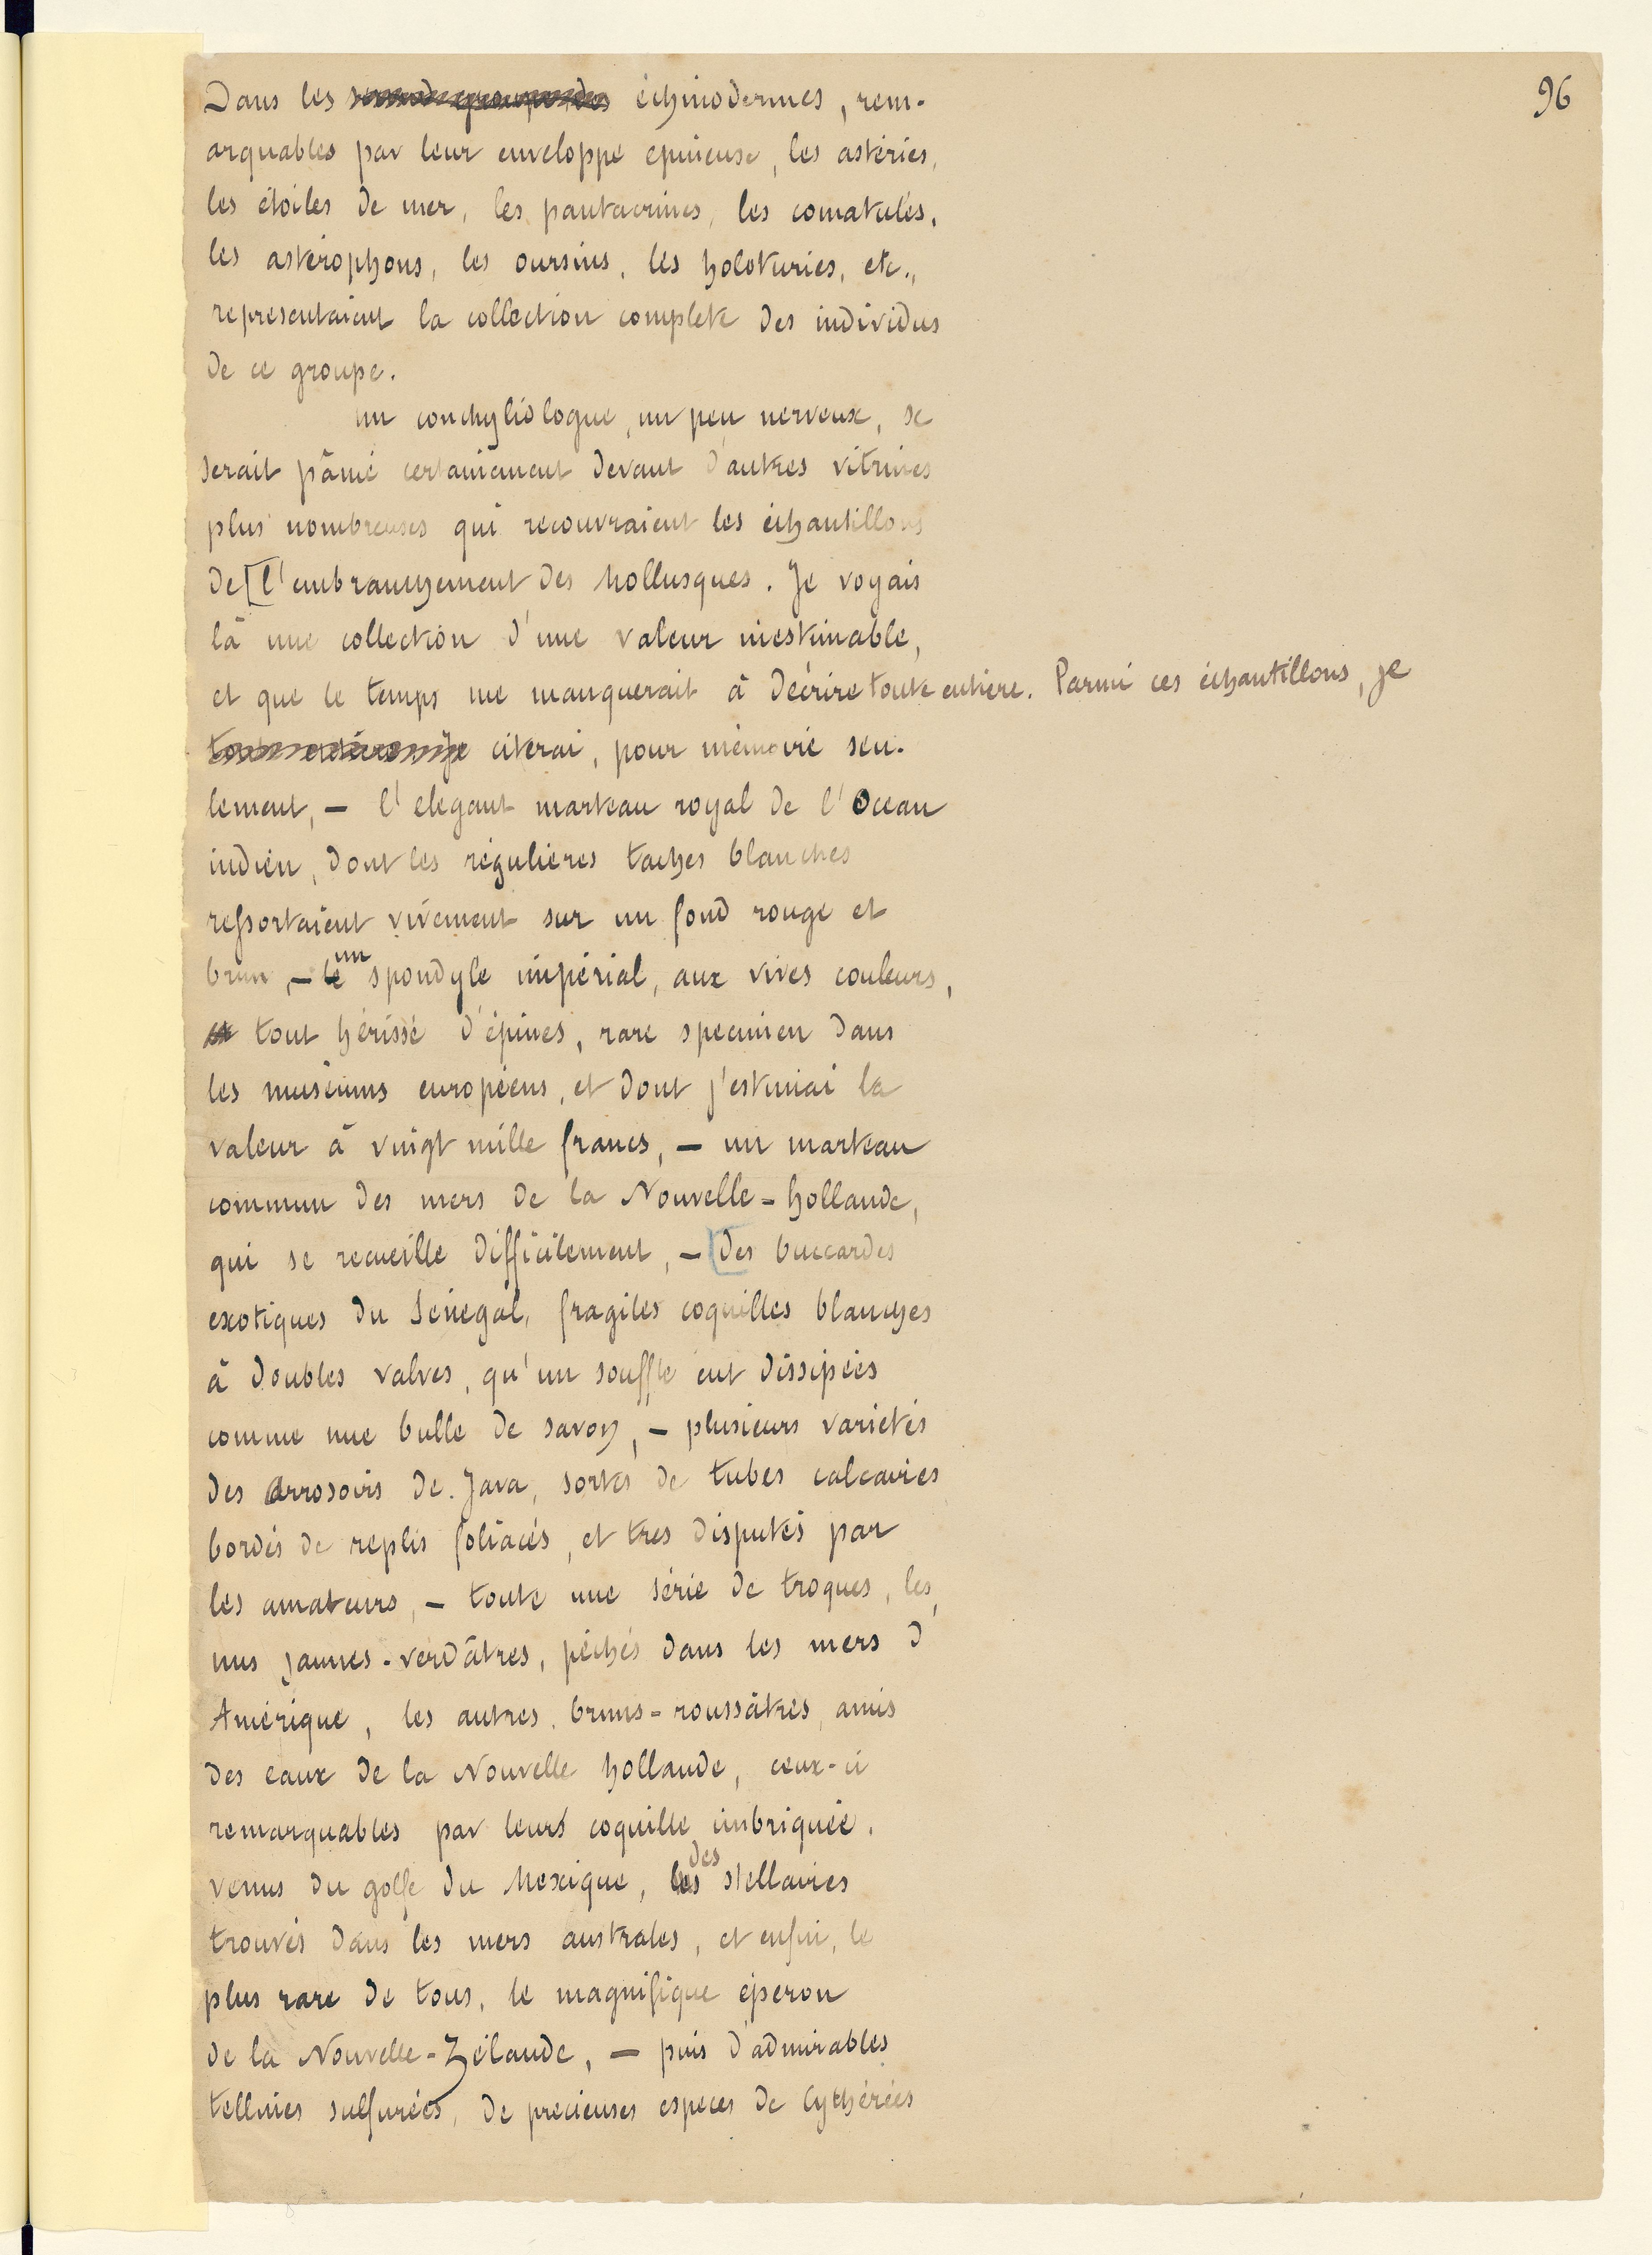 96
Dans les second groupe des échinodermes, rem-
arquables par leur enveloppe épineuse, les astéries,
les étoiles de mer, les pantacrines, les comatules,
les astérophons, les oursins, les holoturies, etc.,
représentaient la collection complète des individus
de ce groupe.
un conchyliologue, un peu nerveux, se
serait pâmé certainement devant d'autres vitrines
plus nombreuses qui recouvraient les échantillons
de [l'embranchement des Mollusques. Je voyais
là une collection d'une valeur inestimable,
et que le temps me manquerait à décrire toute entière. Parmi ces échantillons, je
toute entière. Je citerai, pour mémoire seu-
lement, — l'élégant marteau royal de l'Océan
indien, dont les régulières taches blanches
ressortaient vivement sur un fond rouge et
brun — le un spondyle impérial, aux vives couleurs,
et tout hérissé d'épines, rare specimen dans
les muséums européens, et dont j'estimai la
valeur à vingt mille francs, — un marteau
commun des mers de la Nouvelle-hollande,
qui se recueille difficilement, — [des buccardes
exotiques du Sénégal, fragiles coquilles blanches
à doubles valves, qu'un souffle eut dissipées
comme une bulle de savon, — plusieurs variétés
des arrosoirs de Java, sortes de tubes calcaires
bordés de replis foliacés, et très disputés par
les amateurs, — toute une série de troques, les
uns jaunes-verdâtres, pêchés dans les mers d'
Amérique, les autres, bruns-roussâtres, amis
des eaux de la Nouvelle hollande, ceux-ci
remarquables par leurs coquille imbriquée,
venus du golfe du Mexique, les des stellaires
trouvés dans les mers australes, et enfin, le
plus rare de tous, le magnifique éperon
de la Nouvelle-Zélande, — puis d'admirables
tellines sulfurées, de précieuses espèces de Cythérées